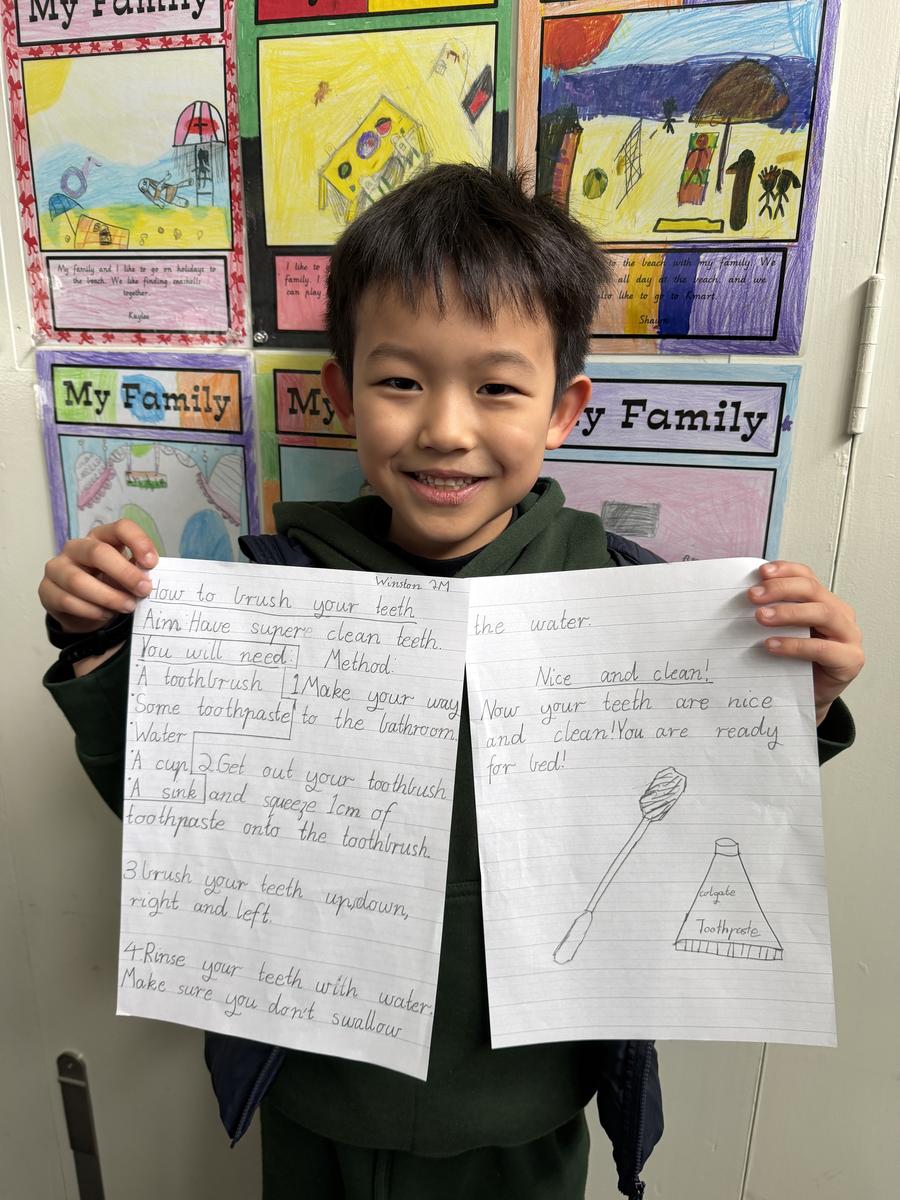 My Family
My family and I like to go on holidays to
the beach. We like finding seashells
together.
Kaylee
I like to g
family. I
can play
to the beach with my family. We
all day at the beach, and we
also like to go to Kmart.
My Family
My
My Family
Winston 2M
How to brush your teeth
Aim: Have super clean teeth.
You will need:
·A toothbrush
·Some toothpaste
·Water
·A cup
·A sink
Method:
1 Make your way
to the bathroom.
2. Get out your toothbush
and squeeze 1cm of
toothpaste onto the toothbrush.
3. brush your teeth up, down,
right and left.
4. Rinse your teeth with water.
Make sure you don't swallow
the water.
Nice and clean!
Now your teeth are nice
and clean! You are ready
for bed!
colgate
Toothpaste